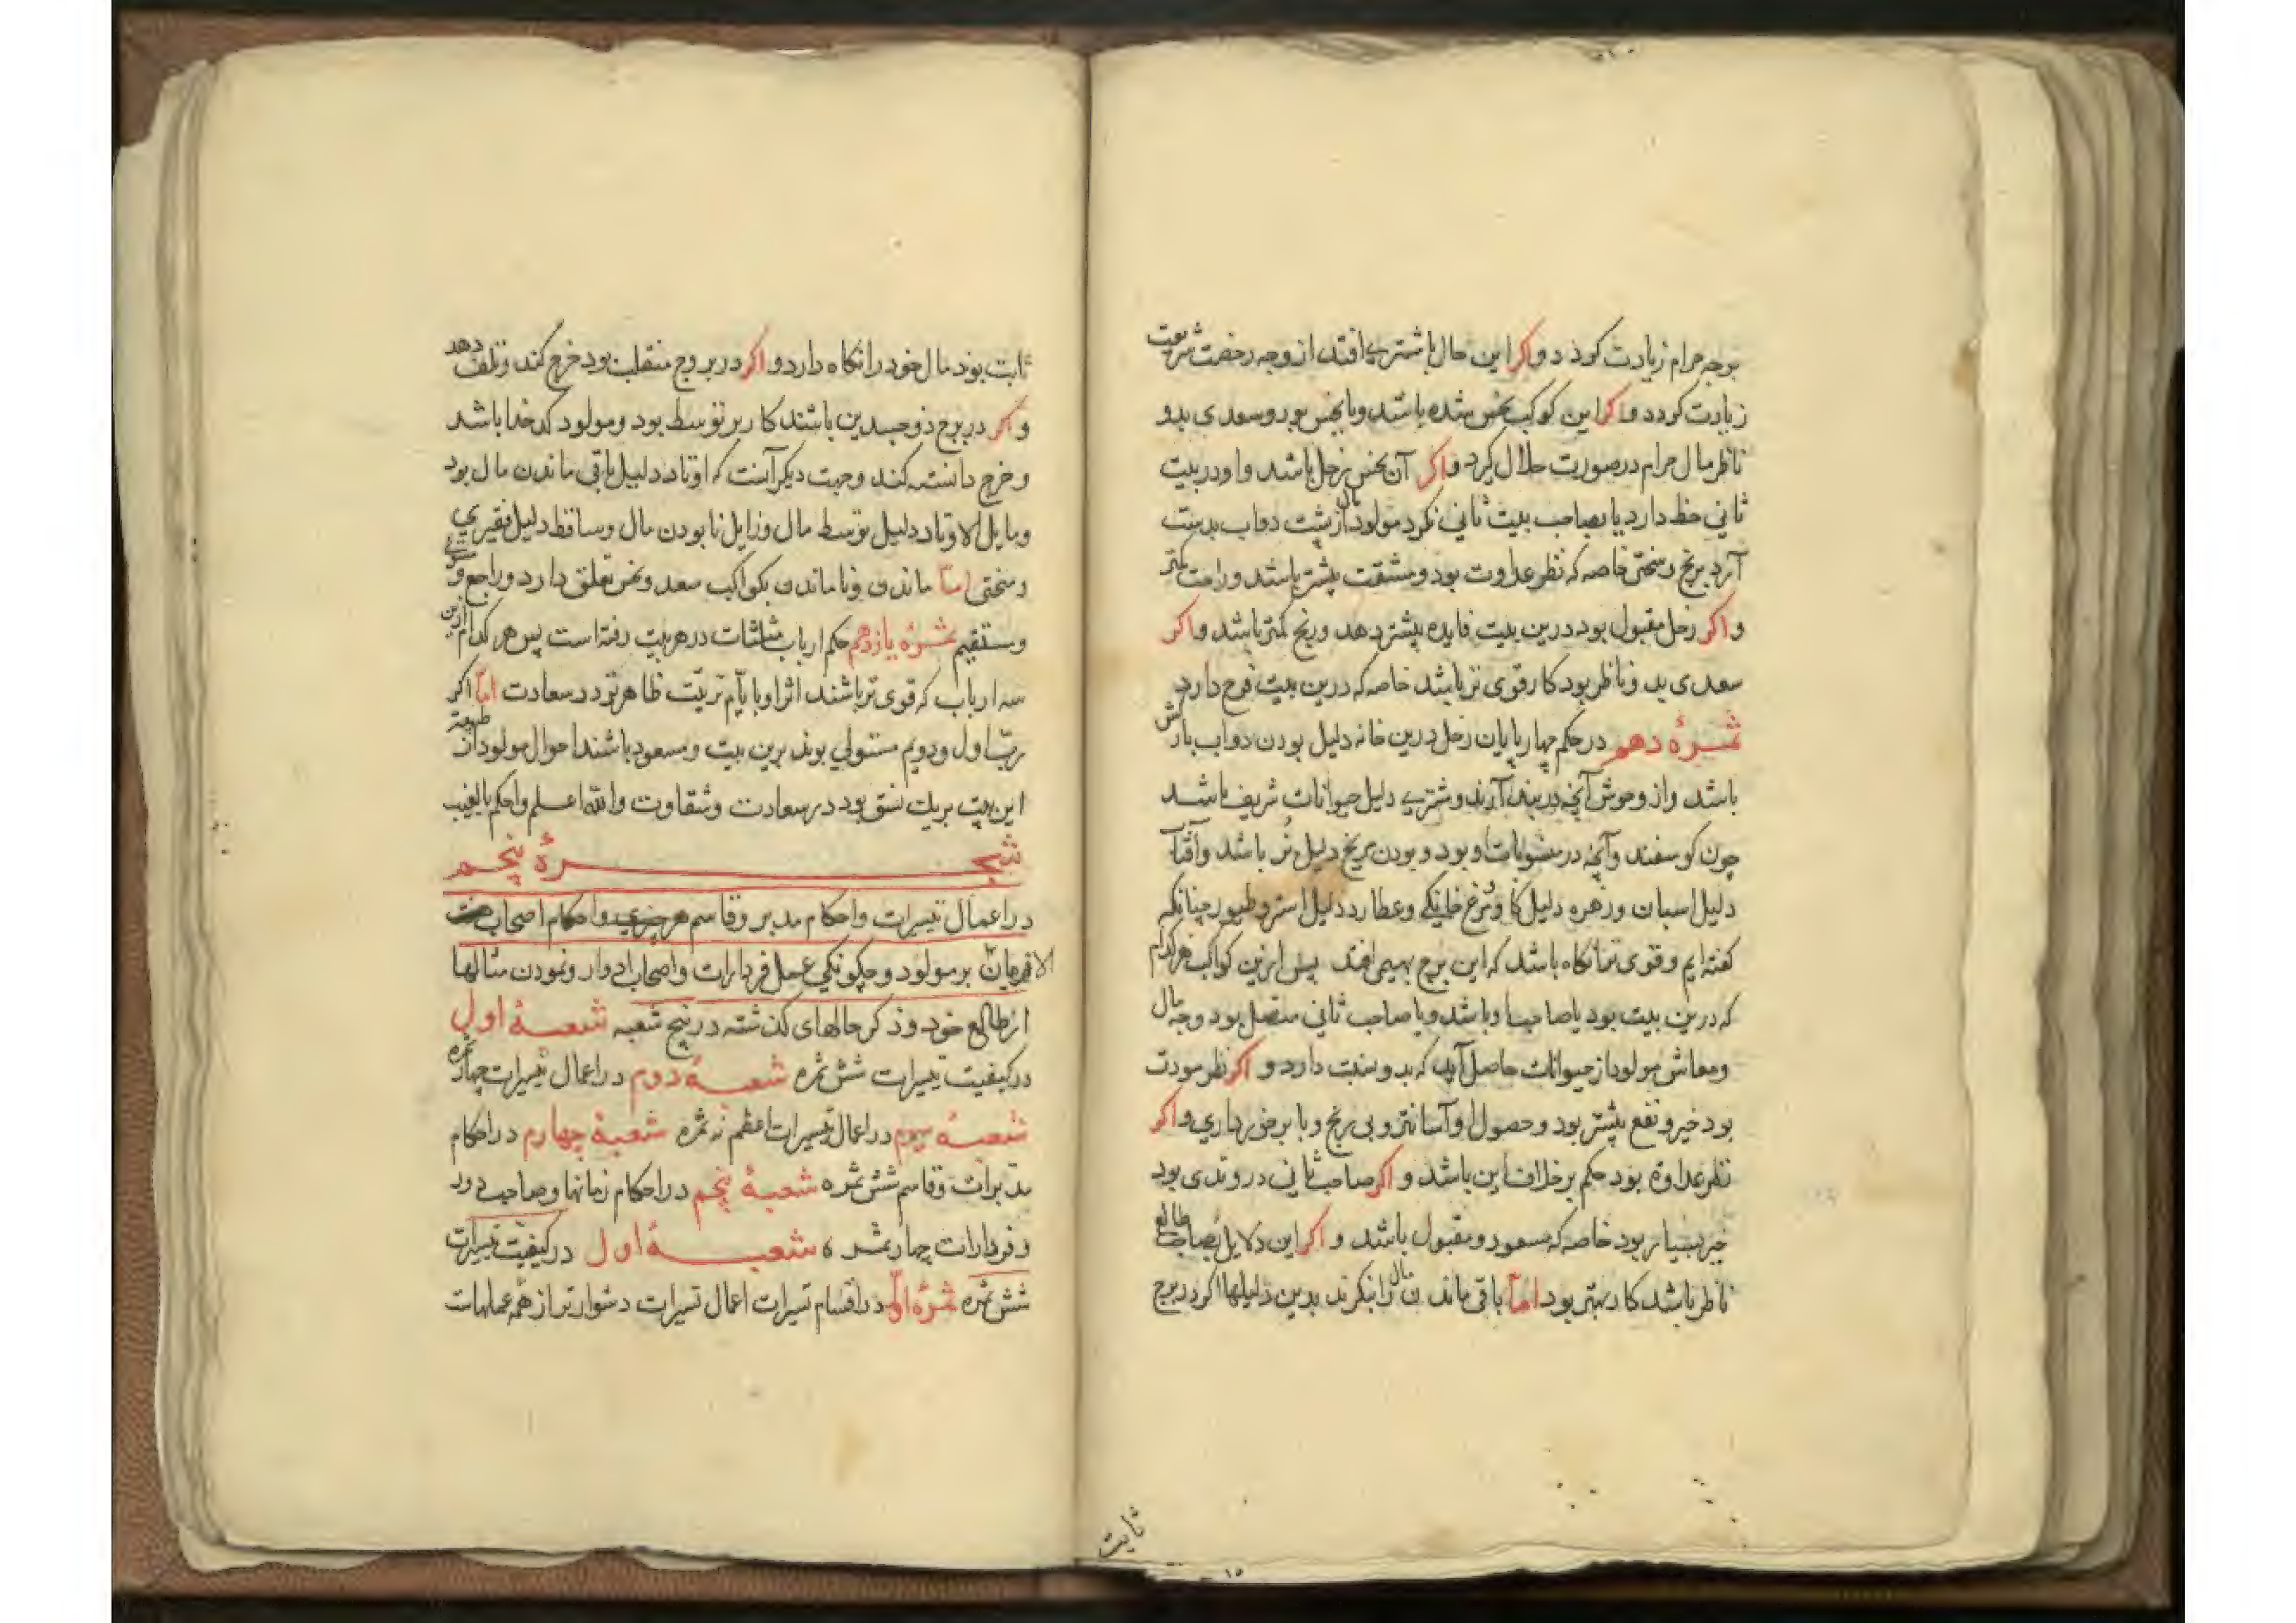 بوجه حرام زیادت کردد و اکر این حال با مشتری افتد از وجه رخصت شریعت
زیادت کردد و اکر این کوکب نحس شده باشد و یا نحس بود و سعدی بدو
ناظر مال حرام در صورت حلال کرد و اکر آن نحس زحل باشد و او در بیت
ثانی حظ دارد یا بصاحب بیت ثانی نکرد مولود مال از پشت دواب بدست
آرد برنج و سختی خاصه که نظر عداوت بود و مشقت بیشتر باشد و راحت کمتر
و اکر زحل مقبول بود درین بیت فایده بیشتر دهد و رنج کمتر باشد و اکر
سعدی بدو ناظر بود کار قوی تر باشد خاصه که درین بیت فرح دارد
ثمرهٔ دهم در حکم چهارپایان زحل درین خانه دلیل بودن دواب بارکش
باشد و از وحوش آنچه در بند آرند و مشتری دلیل حیوانات شریف باشد
چون کوسفند و آنچه در منسوبات او بود و بودن مریخ دلیل بُز باشد و آفتاب
دلیل اسبان و زهره دلیل کاو و مرغ خانکی و عطارد دلیل استر و طیور چنانکه
کفته ایم و قوی تر آنکاه باشد که این برج بهیمی افتد پس ازین کواکب هر کدام
که درین بیت بود یا صاحب او باشد و یا صاحب ثانی متصل بود وجه مال
و معاش مولود از حیوانات حاصل آید که بدو نسبت دارد و اکر نظر مودت
بود خیر و نفع بیشتر بود و حصول او آسانتر و بی رنج و با برخورداری و اکر
نظر عداوة بود حکم بر خلاف این باشد و اکر صاحب ثانی در وتدی بود
خیر بسیار بود خاصه که مسعود و مقبول باشد و اکر این دلایل بصاحب طالع
ناظر باشد کار بهتر بود امّا باقی ماندن مال را بنکرند بدین دلیلها اکر در برج
ثابت
ثابت بود مال خود را نکاه دارد و اکر در بروج منقلب بود خرج کند و تلف دهد
و اکر در برج ذو جسدین باشند کار بر توسط بود و مولود کدخدا باشد
و خرج دانسته کند و جهت دیکر آنست که اوتاد دلیل باقی ماندن مال بود
و مایل الاوتاد دلیل توسط مال و زایل نابودن مال و ساقط دلیل فقیری
و سختی امّا ماندن و ناماندن بکواکب سعد و نحس تعلق دارد و راجع و
و مستقیم ثمرهٔ یازدهم حکم ارباب مثلثات در هر بیت رفته است پس هر کدام ازین
سه ارباب که قوی تر باشند اثر او با یام تربیّت ظاهرتر در سعادت امّا اکر
ربّ اول و دویم مستولی بوند برین بیت و مسعود باشند احوال مولود از
این بیت بریک نسق بود در سعادت و شقاوت و الله اعلم و احکم بالغیب
شجرهٔ پنجم
در اعمال تسییرات و احکام مدبر و قاسم هر چیزی و احکام اصحاب
بر مولود و چکونکی عمل فردارات و اصحاب ادوار و نمودن مثالها
از طالع خود و ذکر حالهای کذشته در پنج شعبه شعبهٔ اول
در کیفیت تسییرات شش ثمره شعبهٔ دوم در اعمال تسییرات چهار ثمره
شعبهٔ سیوم در اعمال تسییرات اعظم نه ثمره شعبهٔ چهارم در احکام
مدبرات و قاسم شش ثمره شعبهٔ پنجم در احکام زمانها و صاحب دور
و فردارات چهار ثمره شعبهٔ اول در کیفیت تسییرات
شش ثمره ثمرهٔ اول در اقسام تسیرات اعمال تسیرات دشوارتر از همه عملهاست